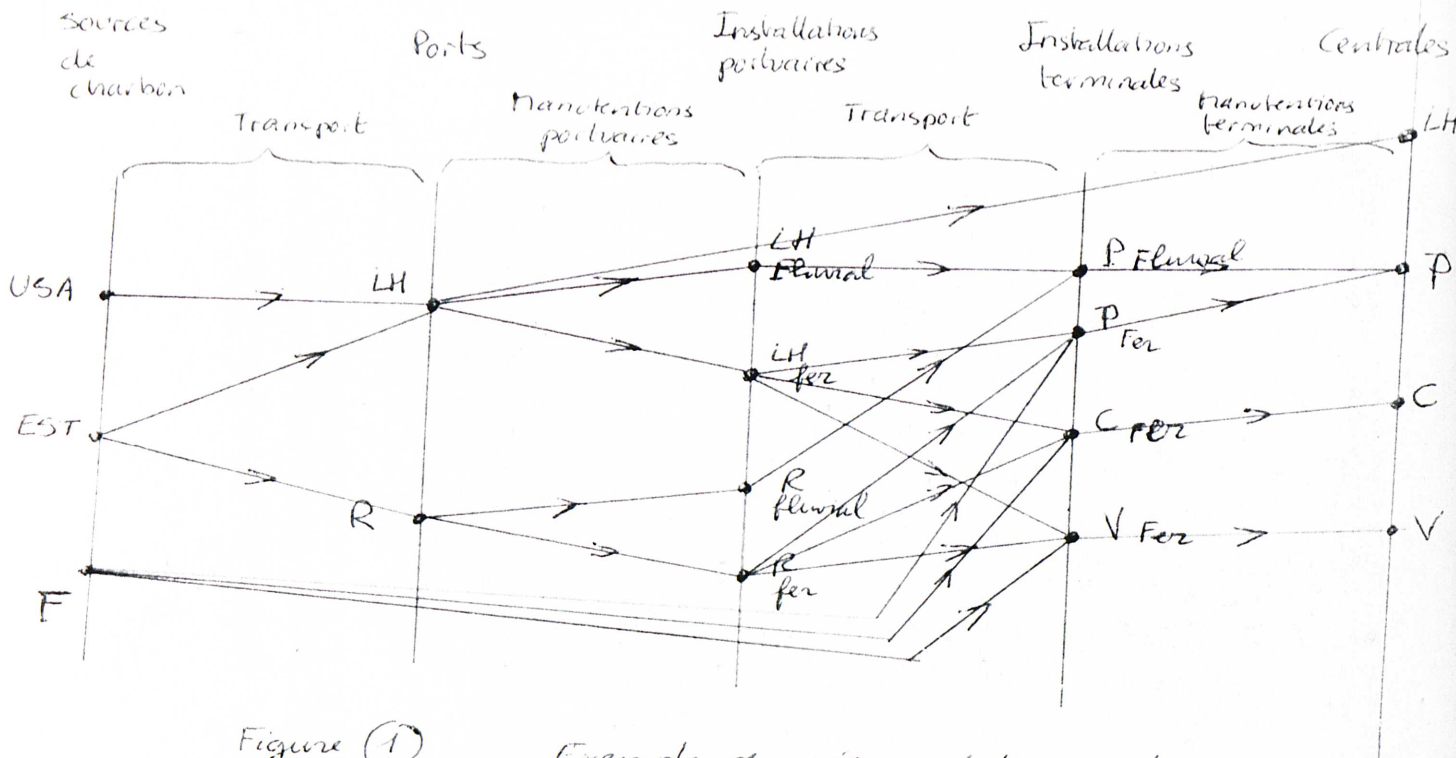 Sources
de
charbon
Ports
Installations
portuaires
Installations
terminales
Centrales
Transport
Manutentions
portuaires
Transport
Manutentions
terminales
LH
LH
Fluvial
P Fluvial
P
USA
LH
P
Fer
LH
fer
C
C Fer
EST
R
fluvial
R
V Fer
V
R
fer
F
Figure 1